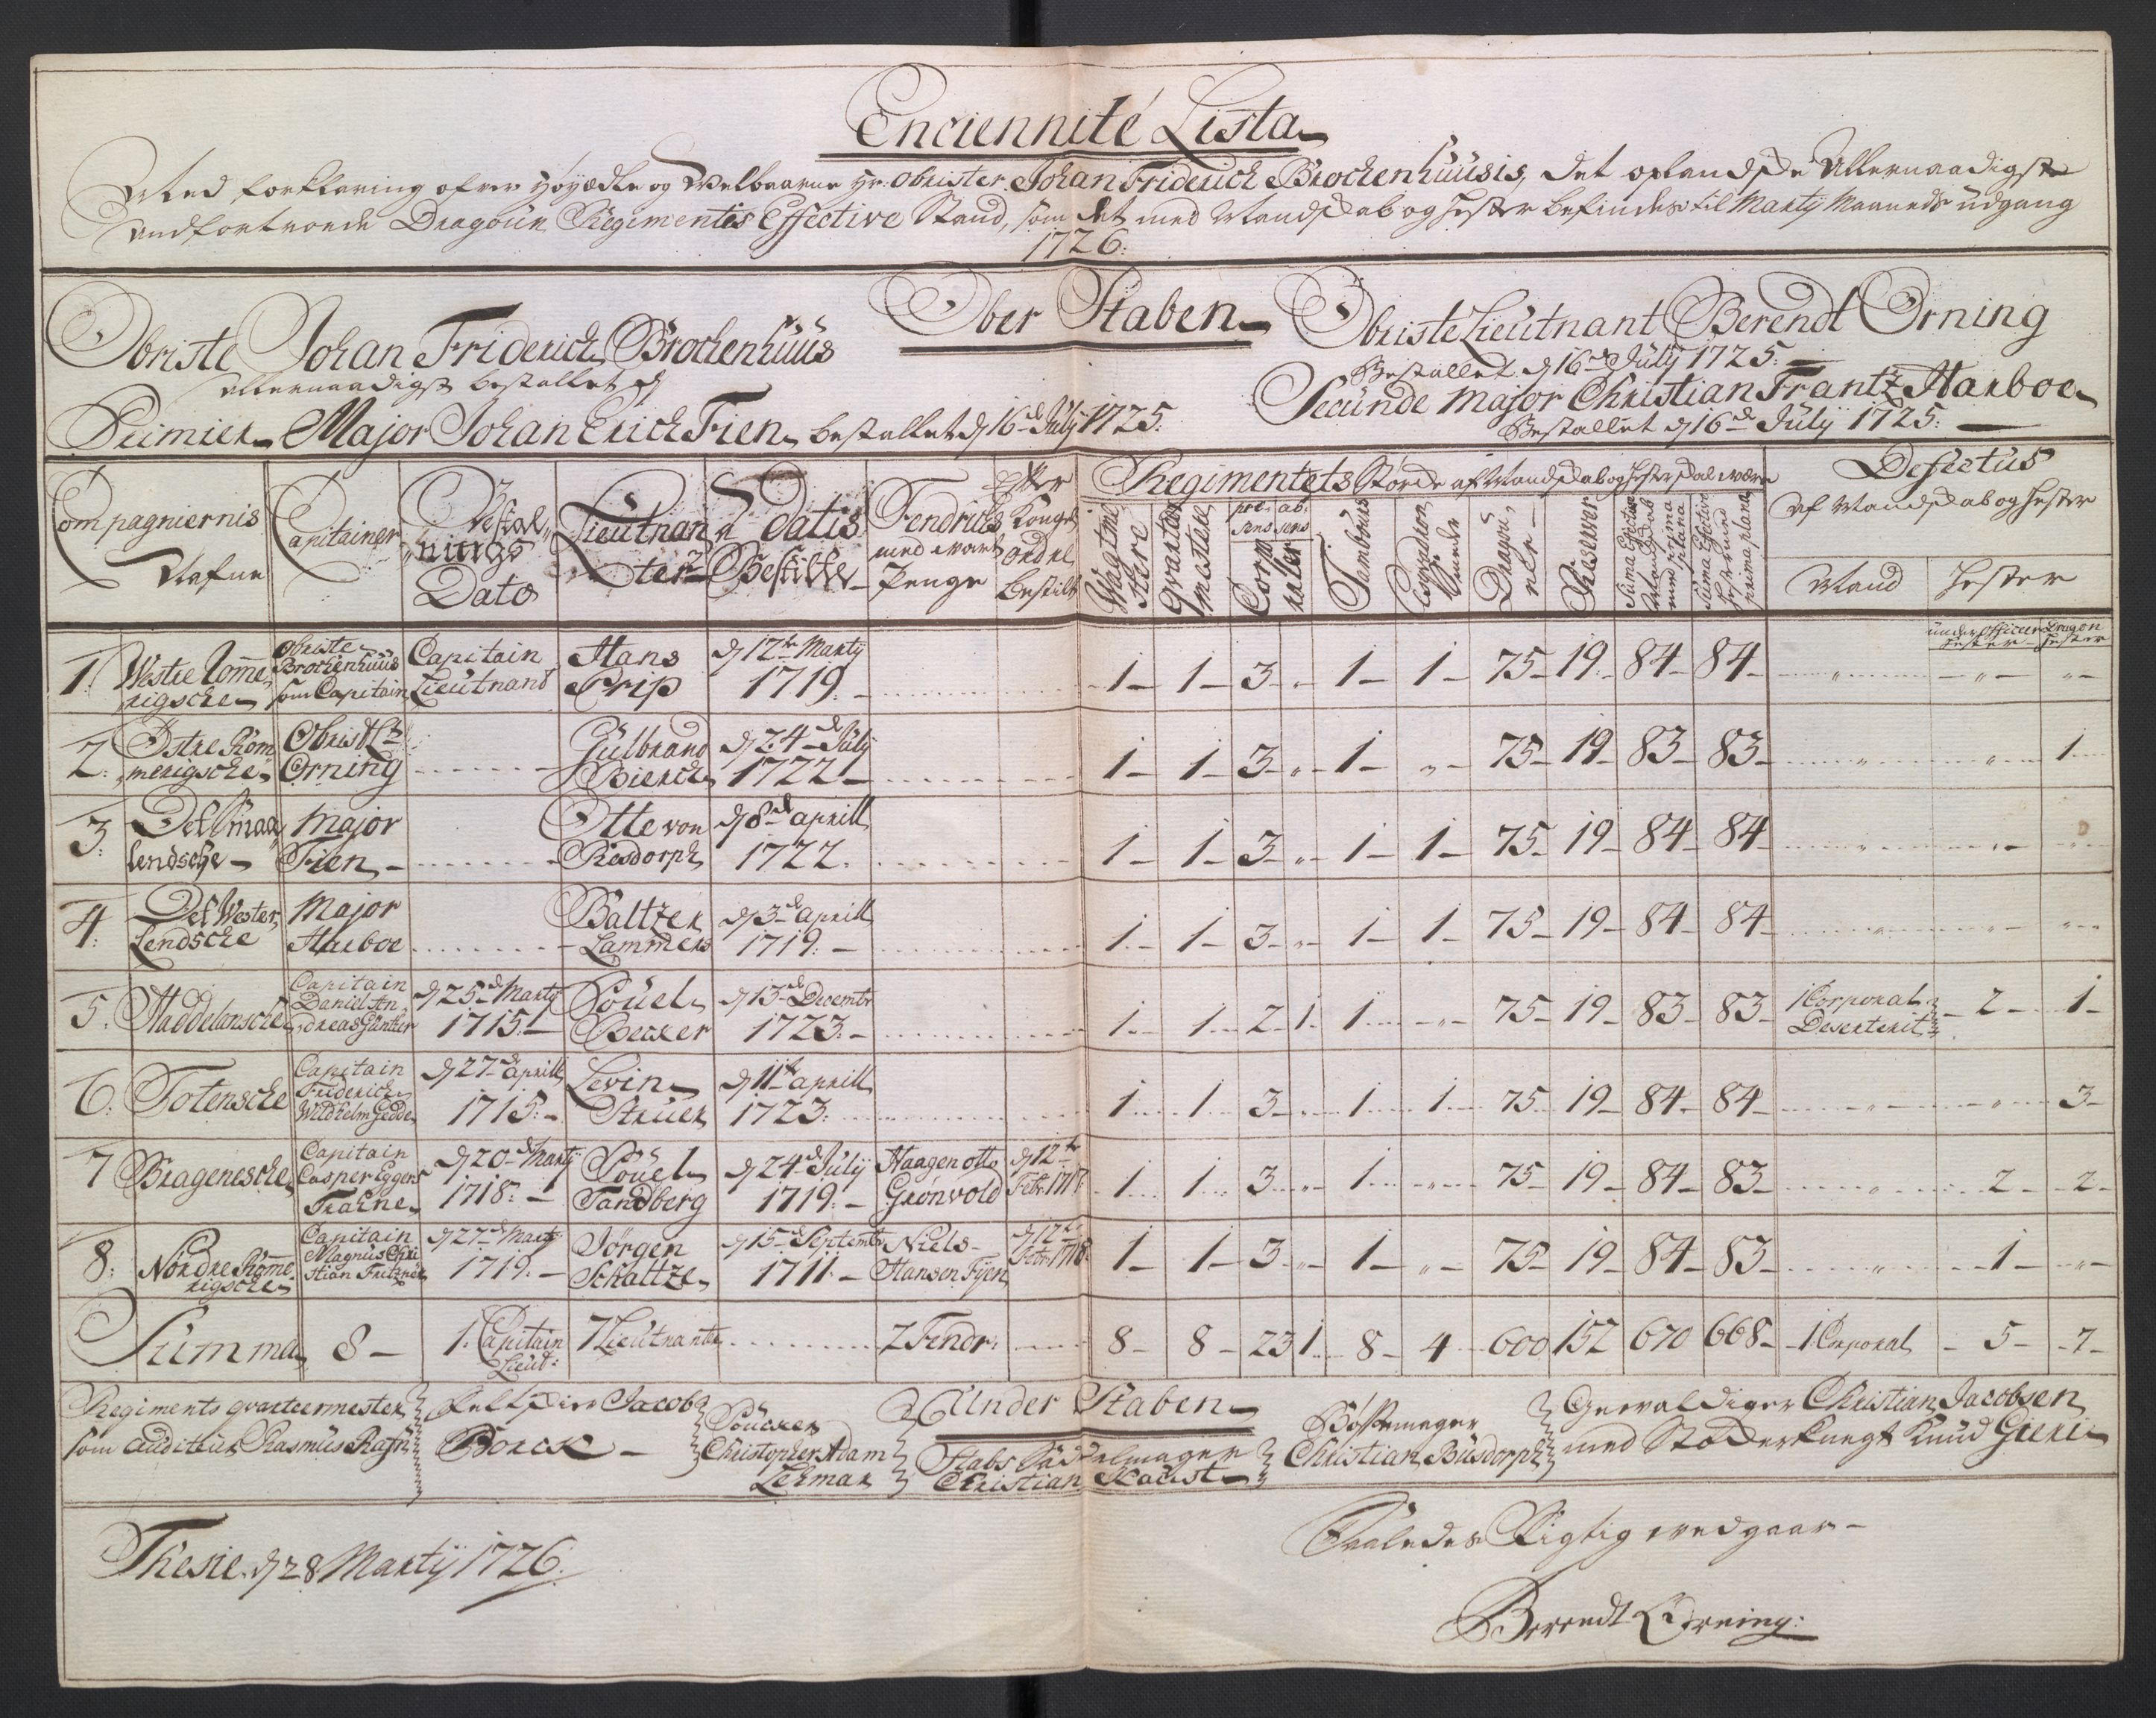 Enciennité Lista
Med forklaring ofver Høyædle og Velbaarne Hr: Obrister Johan Friderich Brochenhuusis, det oplandske Allernaadigst
andfortroede Dragoun Regimentes Effective Stand, som det med Mandskab og Hester befindes til Marty Maaneds udgang
1726.
Ober Staben
Obriste Johan Friderich Brochenhuus
allernaadigst bestallet d
Obriste Lieutnant Berendt Orning
Bestallet d 16d July 1725.
Primier Major Johan Erich Fien, bestallet d 16d July 1725.
Secunde Major Christian Frantz Harboe
Bestallet d 16de July 1725.
Compagniernis Nafne
Capitainer
Bestallnings Dato
Lieutnanter
Datis Bestilte
Fendrichs med Penge
efter Kongel ordre bestilt
Regimentets Störde af Mandskab og Hester skal være
Wagtmestere
Qvartermestere
præsens absens
Corporaler
Tambours
Esqvadron Smede
Dragouner
Reserver
Suma Effective Mandskab med prima plana
Suma Effective Hester med prima plana
Defectus
af Mandskab og Hester
Mand
Hester
under Officeer Hester
Dragon Hester
1. Westre Romerigsche Obriste Brochenhuus som Capitain Capitain Lieutnand Hans Prip d 12te Marty 1719. 1 1 3 " 1 1 75 19 84 84 " " "
2. Östre Rommerigsche Obrist Lt Orning Gulbrand Bierch d 24d July 1722 1 1 3 " 1 " 75 19 83 83 " " 1
3. Det Smaalendsche Major Fien Otte von Resdorph d 8d aprill 1722. 1 1 3 " 1 1 75 19 84 84 " " "
4. Det Westerlendsche Major Harboe Baltzer Lammers d 3d aprill 1719. 1 1 3 " 1 1 75 19 84 84 " " "
5. Haddelansche Capitain Daniel Andreas Günther d 25d Marty 1715. Pouel Becker d 13d Decembr 1723. 1 1 2 1 1 " 75 19 83 83 1 Corporal Deserterit 2 1
6. Totensche Capitain Friderich Wildhelm Gedde d 27d aprill 1715. Levin Struer d 11te aprill 1723. 1 1 3 " 1 1 75 19 84 84 " " 3
7 Bragenesche Capitain Casper Eggers Frahne d 20d Marty 1718. Pouel Tandberg d 24d July 1719. Haagen Otto Grønvold d 12te Febr 1717 1 1 3 " 1 " 75 19 84 83 " 2 2
8. Nordre Romerigsche Capitain Magnus Christian Fritzner d 27d Marty 1719. Jörgen Schaltze d 15d Septembr 1711. Niels Hansen Fyen d 12te Febr 1718 1 1 3 " 1 " 75 19 84 83 " 1 "
Summa 8 1. Capitain Lieut: 7 Lieutnante 2 Fendr: 8 8 23 1 8 4 600 152 670 668 1 Corporal 5 7
Under Staben
Regiments qvarteermester
som Auditeur Rasmus Rafn
Feltskier Jacob
Borck
Poucker
Christopher Adam
Lehman
Stabs Saddelmager
Christian Knust
Bøssemager
Christian Busdorph
Gewaldiger Christian Jacobsen
med Stokkerknegt Knud
Thesie d 28 Marty 1726.
Saaledes Rigtig vedgaar
Berendt Orning: